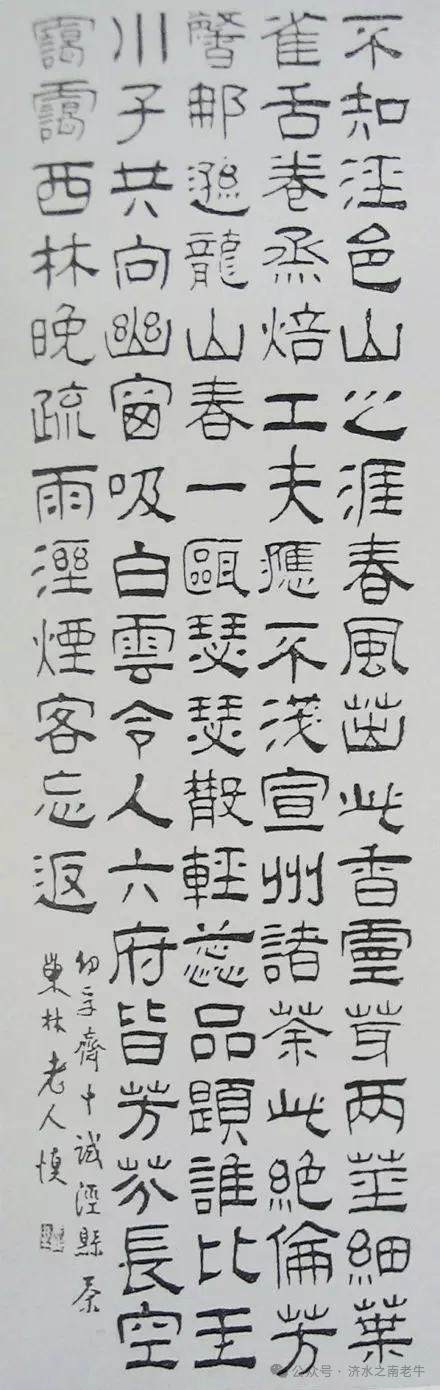 不知涇邑山之涯春風茁此香靈芽两莖細葉
雀舌卷烝焙工夫應不淺宣州諸茶此絕倫芳
馨那遜龍山春一甌瑟瑟散輕蕊品題誰比玉
川子共向幽窗吸白雲令人六府皆芳芬長空
靄靄西林晚疏雨溼煙客忘返
幼孚齋中試涇縣茶
巢林老人慎
公众号 · 济水之南老牛